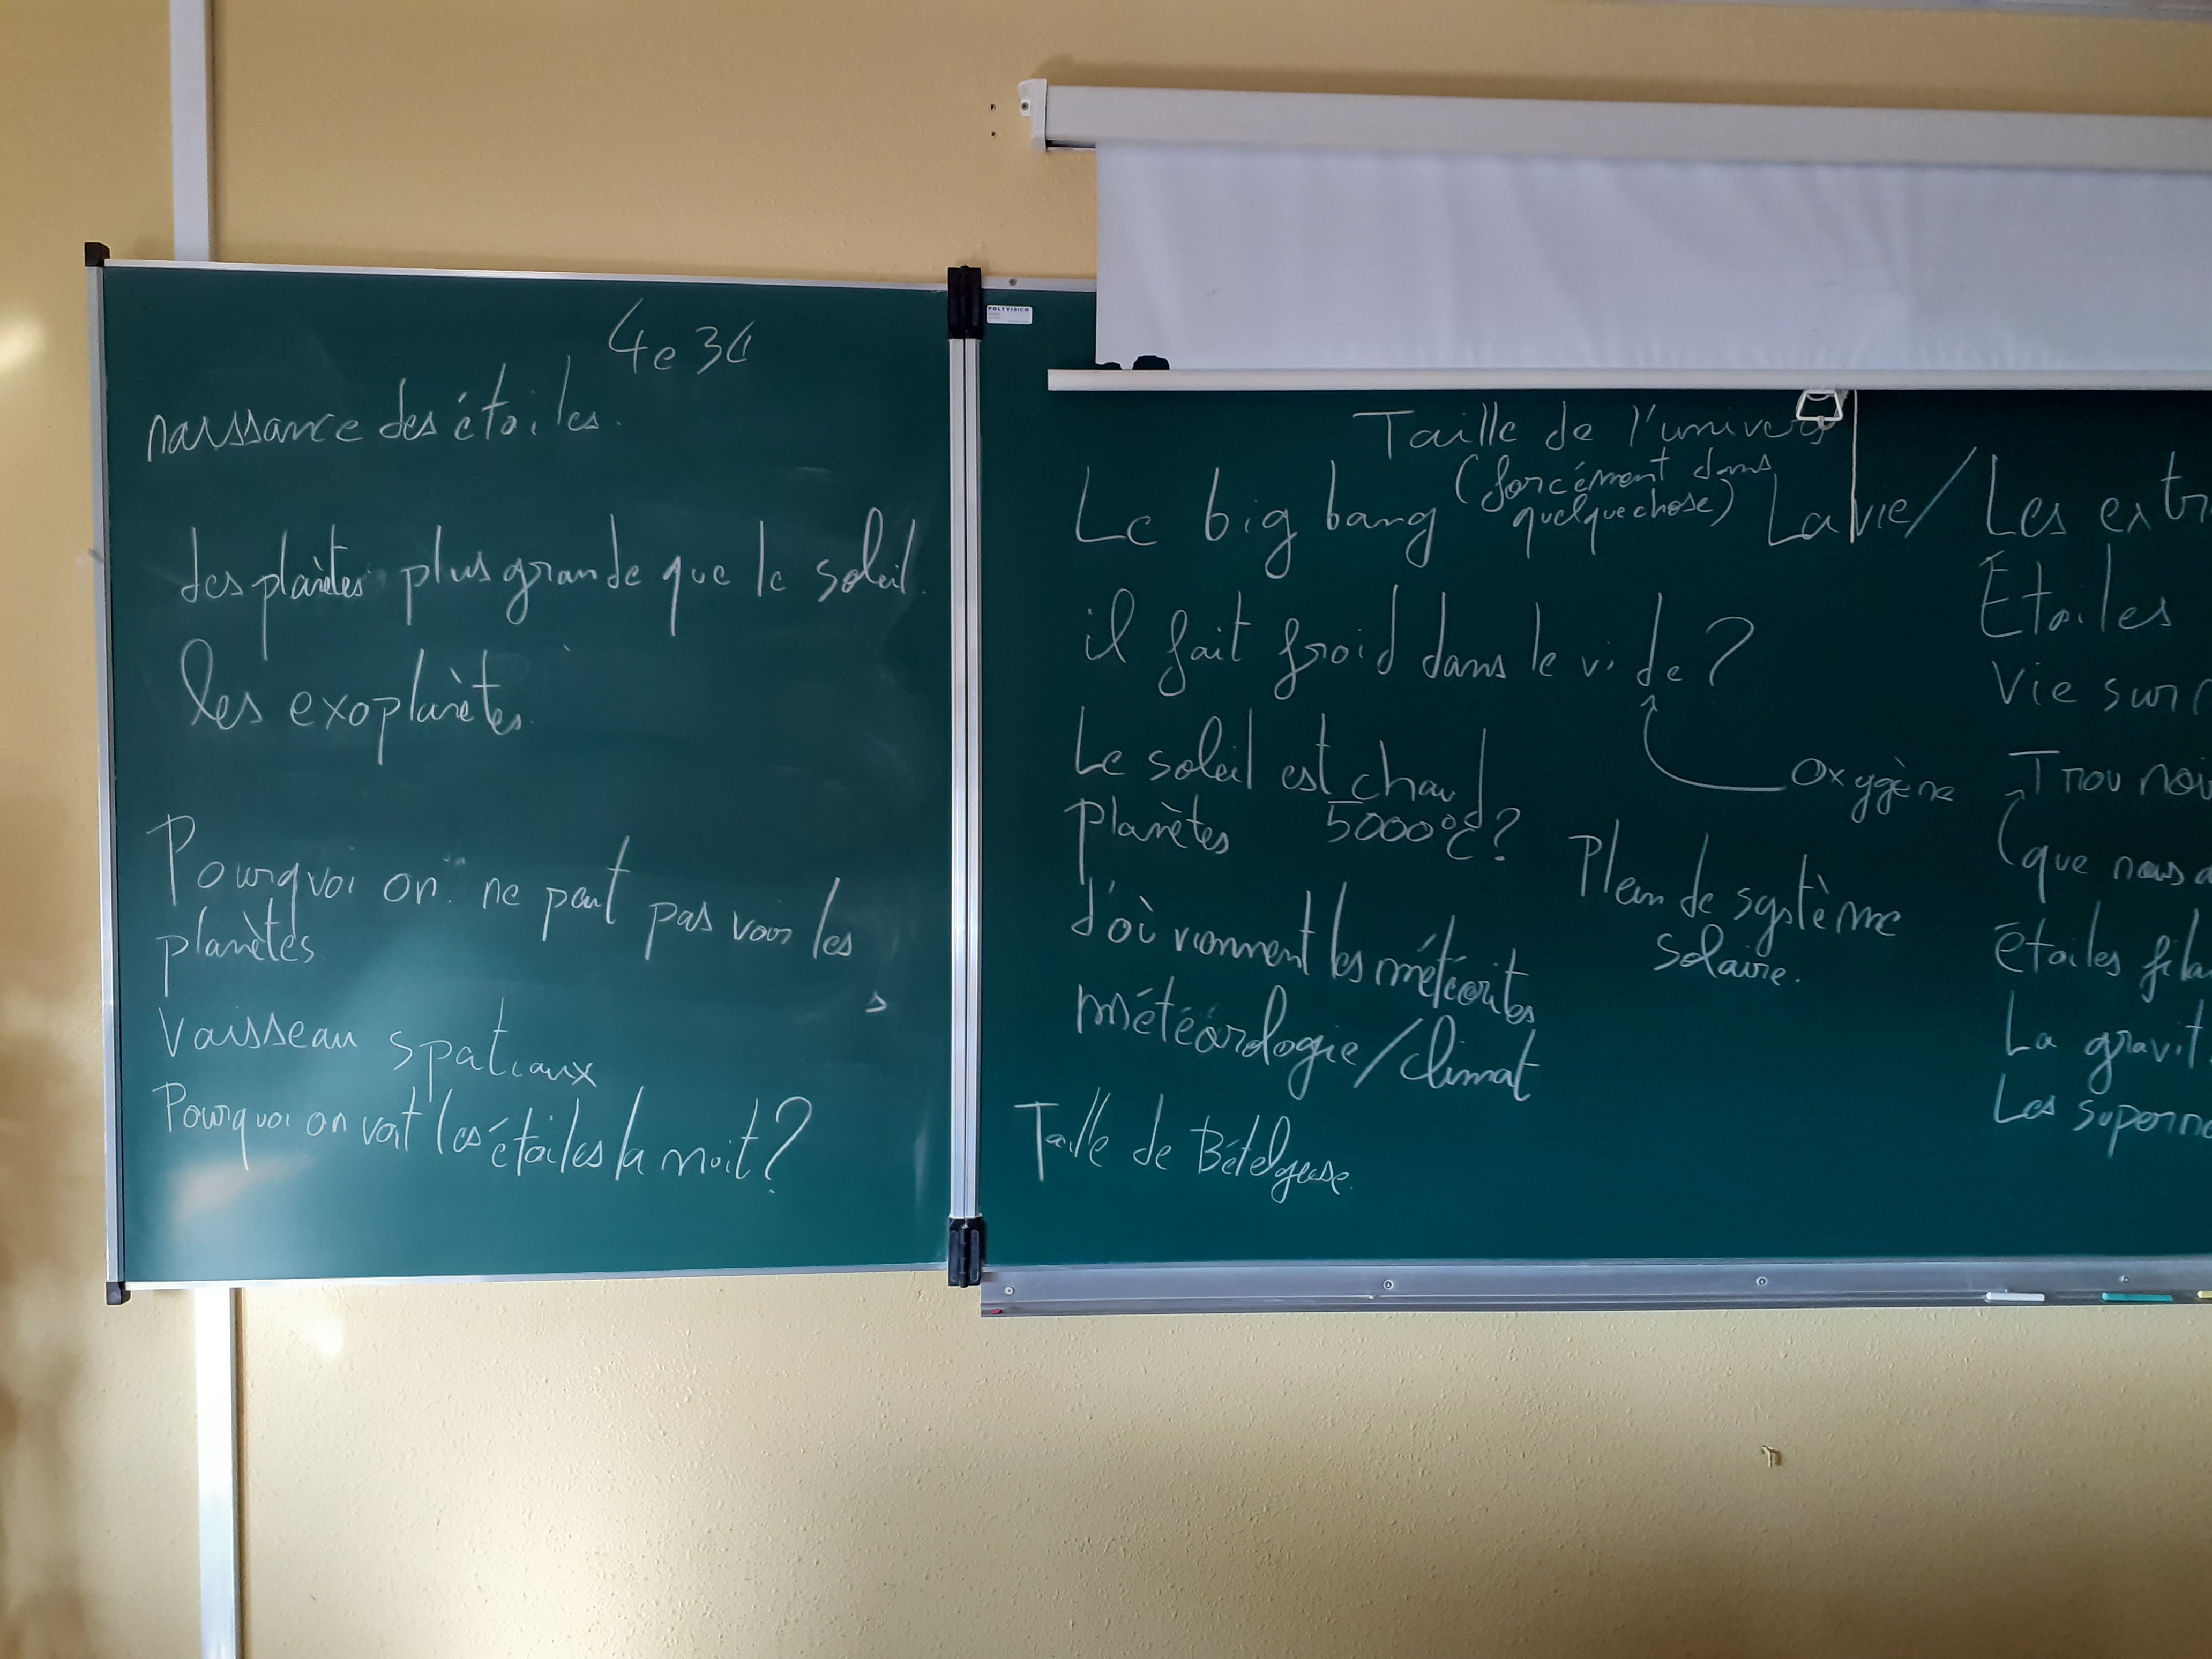 4e 3
naissance des étoiles.
des planètes plus grande que le soleil.
les exoplanètes.
Pourquoi on ne peut pas voir les
planètes
s
Vaisseau spatiaux
Pourquoi on voit les étoiles la nuit?
POLYVISION
Taille de l'univers
(forcément dans
quelquechose)
Le big bang
La vie/Les extr
il fait froid dans le vide?
Oxygène
Le soleil est chaud
5000°C?
Planètes
Plein de système
solaire.
d'où viennent les météorites
météorologie/climat
Taille de Bételgeuse.
Étoiles
Vie sur
Trou noi
(que nous a
étoiles fila
La gravit
Les superno